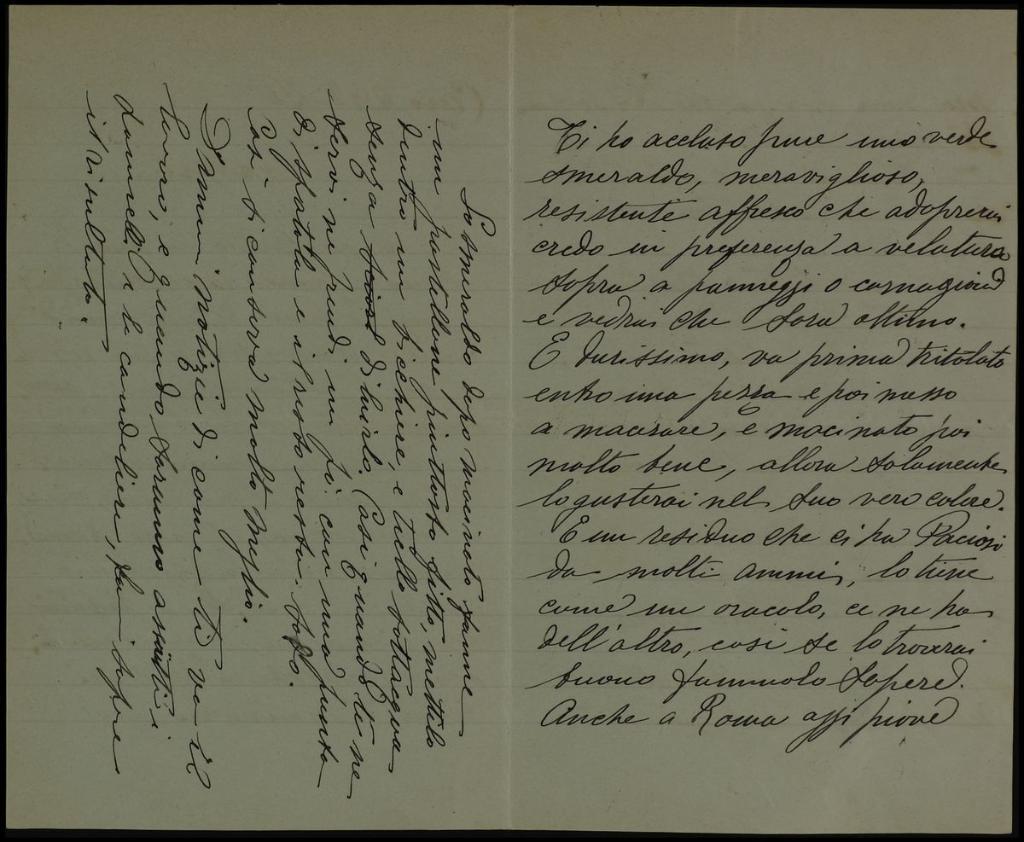 Ti ho accluso pure un verde
smeraldo, meraviglioso,
resistente affresco che adoprerai
credo in preferenza a velatura
sopra a panneggi o carnagioni
e vedrai che sarà ottimo.
È durissimo, va prima tritolato
entro una pezza e poi messo
a macerare, e macinato poi
molto bene, allora solamente
lo gusterai nel suo vero colore.
È un residuo che ci ha Paciosi
da molti anni, lo tiene
come un oracolo, ce ne ha
dell'altro, così se lo troverai
buono fammelo sapere.
Anche a Roma oggi piove
Lo smeraldo dopo macinato fanne
un pastellone piuttosto fitto, mettilo
dentro un bicchiere, e tiello sottacqua
senza diluirlo. Così quando te ne
servi ne prendi un po' con una punta
di spatola e il resto resta sodo.
Così si conserva molto meglio.
Dammi notizie di come ti va il
lavoro, e quando saranno assisitti i
le candeliere, fa sapere
il risultato.